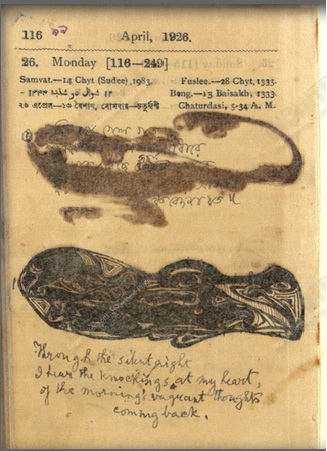 116 ১২ April, 1926.
26. Monday [116—249]
Samvat.—14 Chyt (Sudee), 1983. Fuslee.—28 Chyt, 1333.
۱۳ شوال روز شنبه ۱۳۴۴ Beng.—13 Baisakh, 1333.
২৬ এপ্রেল—১৩ বৈশাখ, সোমবার—চতুর্দ্দশী Chaturdasi, 5-34 A. M.
Through the silent night
I hear the knockings at my heart,
of the morning's vagrant thoughts
coming back.